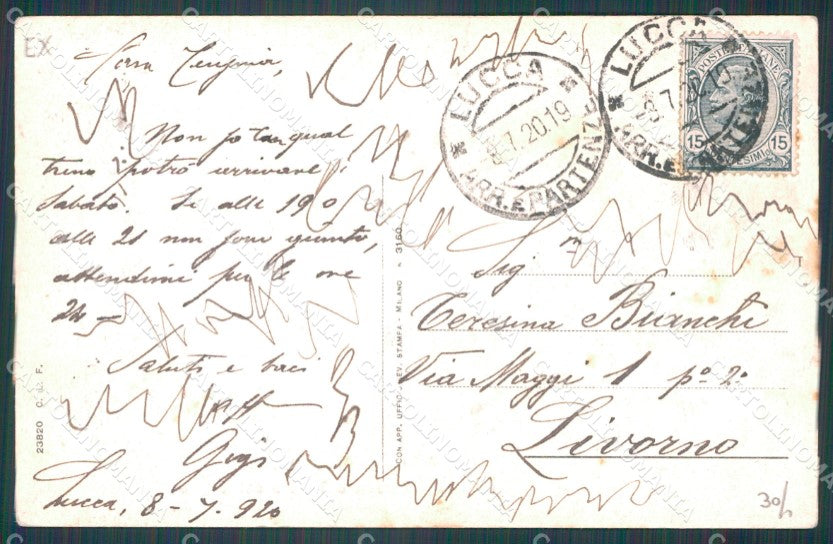 EX
Cara Teresina,
Non so con qual
treno potrò arrivare
Sabato. Se alle 19 o
alle 21 non sono giunto,
attendimi per le ore
24 -
Saluti e baci
Gigi
Lucca, 8-7-920
23820 C. & F.
CON APP. UFFIC. REV. STAMPA - MILANO N 3160
LUCCA
8.7.20.19
ARR. E PARTENZE
LUCCA
ARR. E PARTENZE
POSTE ITALIANE
15 15
CENTESIMI
Sig.na
Teresina Bianchi
Via Maggi 1 po 2o
Livorno
30/
CARTOLINOMANIA